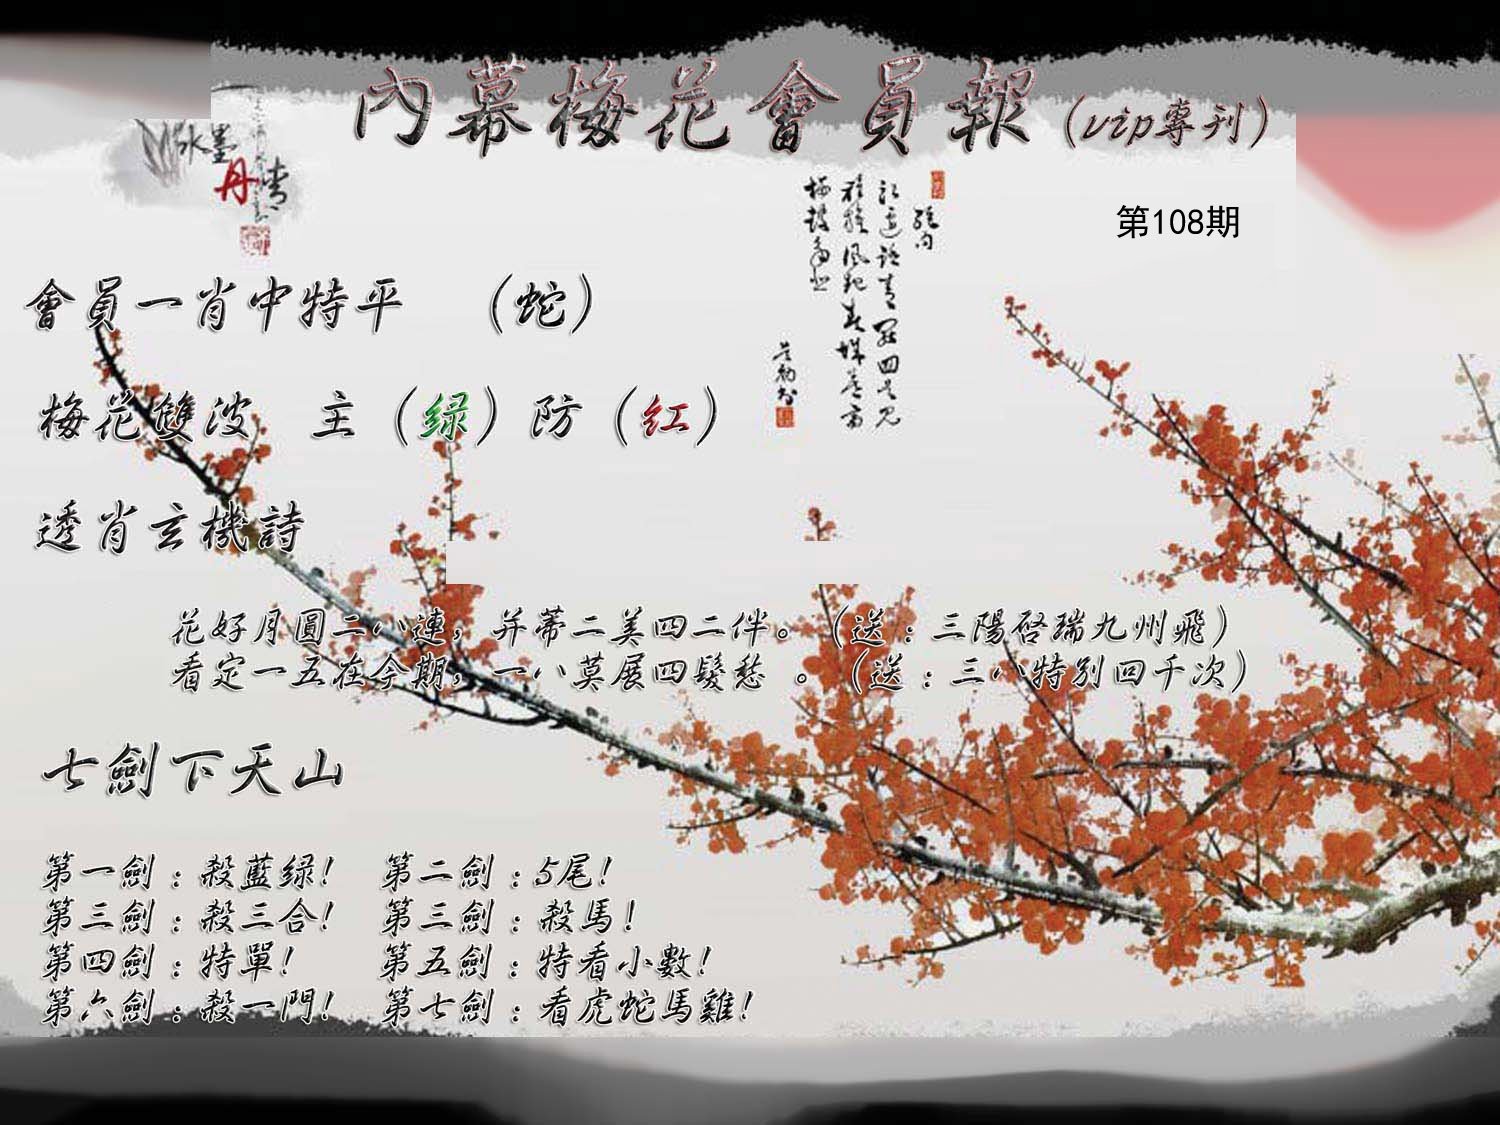 內幕梅花會員報（vip專刊）
水墨
丹青
第108期
會員一肖中特平 （蛇）
梅花雙波 主（绿）防（红）
透肖玄機詩
花好月圓二八連，并蒂二美四二伴。（送：三陽啓瑞九州飛）
看定一五在今期，一八莫展四鬢愁 。（送：三八特别回千次）
七劍下天山
第一劍：殺藍绿! 第二劍：5尾!
第三劍：殺三合! 第三劍：殺馬!
第四劍：特單! 第五劍：特看小數!
第六劍：殺一門! 第七劍：看虎蛇馬雞!